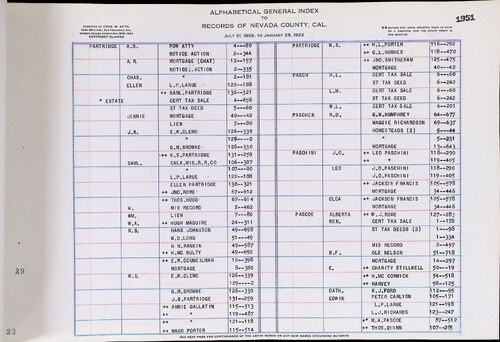 1951
ALPHABETICAL GENERAL INDEX
TO
RECORDS OF NEVADA COUNTY, CAL.
JULY 21, 1856, TO JANUARY 26, 1922
COPYRIGHT CLAIMED
PARTRIDGE A.B. POW ATTY 4---80
NOTICE ACTION 2---344
A.R. MORTGAGE (CHAT) 12---157
NOTICE, ACTION 2---335
CHAS. " 2---181
ELLEN L.P. LARUE 122---188
++ SAML. PARTRIDGE 130---321
" ESTATE CERT TAX SALE 4---656
ST TAX DEED 5---66
JENNIE MORTGAGE 40---42
LIEN 7---80
J.B. E.M. CLERC 126---339
" 126---2
G.M. BROWNE 126---330
++ H.S. PARTRIDGE 131---259
SAML. CALA. MID. R.R. CO 106---307
" 107---80
L.P. LARUE 122---188
ELLEN PARTRIDGE 130---321
++ JNO. ROWE 67---612
++ THOS. HOOD 67---614
W. MIS RECORD 3---462
WM. LIEN 7---80
W.A. ++ HUGH MAGUIRE 24---311
W.B. HANS JOHNSTON 49---698
W.D. LONG 51---49
W.H. RANKIN 49---587
++ H. MC NULTY 49---692
++ E.R. COUNCILMAN 10---398
MORTGAGE 8---380
W.S. ++ E.M. CLERC 126---339
" 129---2
G.M. BROWNE 126---330
J.B. PARTRIDGE 131---259
++ ANNIE GALLATIN 115---513
++ " 119---487
++ " 121---118
++ MAUD PORTER 115---514
PARTRIDGE W.S. ++ H.L. PORTER 116---292
++ G.L. HUGHES 118---470
++ JNO. SMITHERAM 125---475
MORTGAGE 40---42
PASCH H.L. CERT TAX SALE 6---60
ST TAX DEED 6---242
L.H. CERT TAX SALE 6---60
ST TAX DEED 6---242
W.L. CERT TAX SALE 6---201
PASCHEN R.D. G.W. HUMPHREY 64---677
MAGGIE RICHARDSON 69---637
HOMESTEADS (2) 5---44
" 5---231
MORTGAGE 13---643
PASCHINI J.O. ++ LEO PASCHINI 118---290
++ " 119---405
LEO J.O. PASCHINI 118---290
J.O. PASCHINI 119---405
++ JACKSON FRANCIS 105---578
MORTGAGE 34---446
OLGA ++ JACKSON FRANCIS 105---578
MORTGAGE 34---446
PASCOE ALBERTA ++ W.J. ROWE 127---283
BEN. CERT TAX SALE 1---172
ST TAX DEEDS (2) 1---98
" 1---334
MIS RECORD 2---497
B.F. OLE NELSON 51---718
MORTGAGE 14---297
E. ++ CHARITY STILLWELL 50---19
++ H. MC CORMICK 54---518
++ HARVEY 98---125
CATH. K.J. FORD 112---95
EDWIN PETER CARLYON 105---171
L.P. LARUE 121---198
L.J. RICHARDS 123---247
++ M.A. PASCOE 87---512
++ THOS. QUINN 107---215
29
28